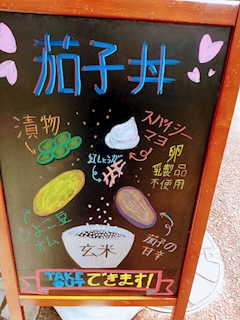 茄子丼
漬物
スパイシー
マヨ
卵
乳製品
不使用
紅しょうが
ひよこ豆
茄子の
甘辛
玄米
TAKE
OUT
できます!